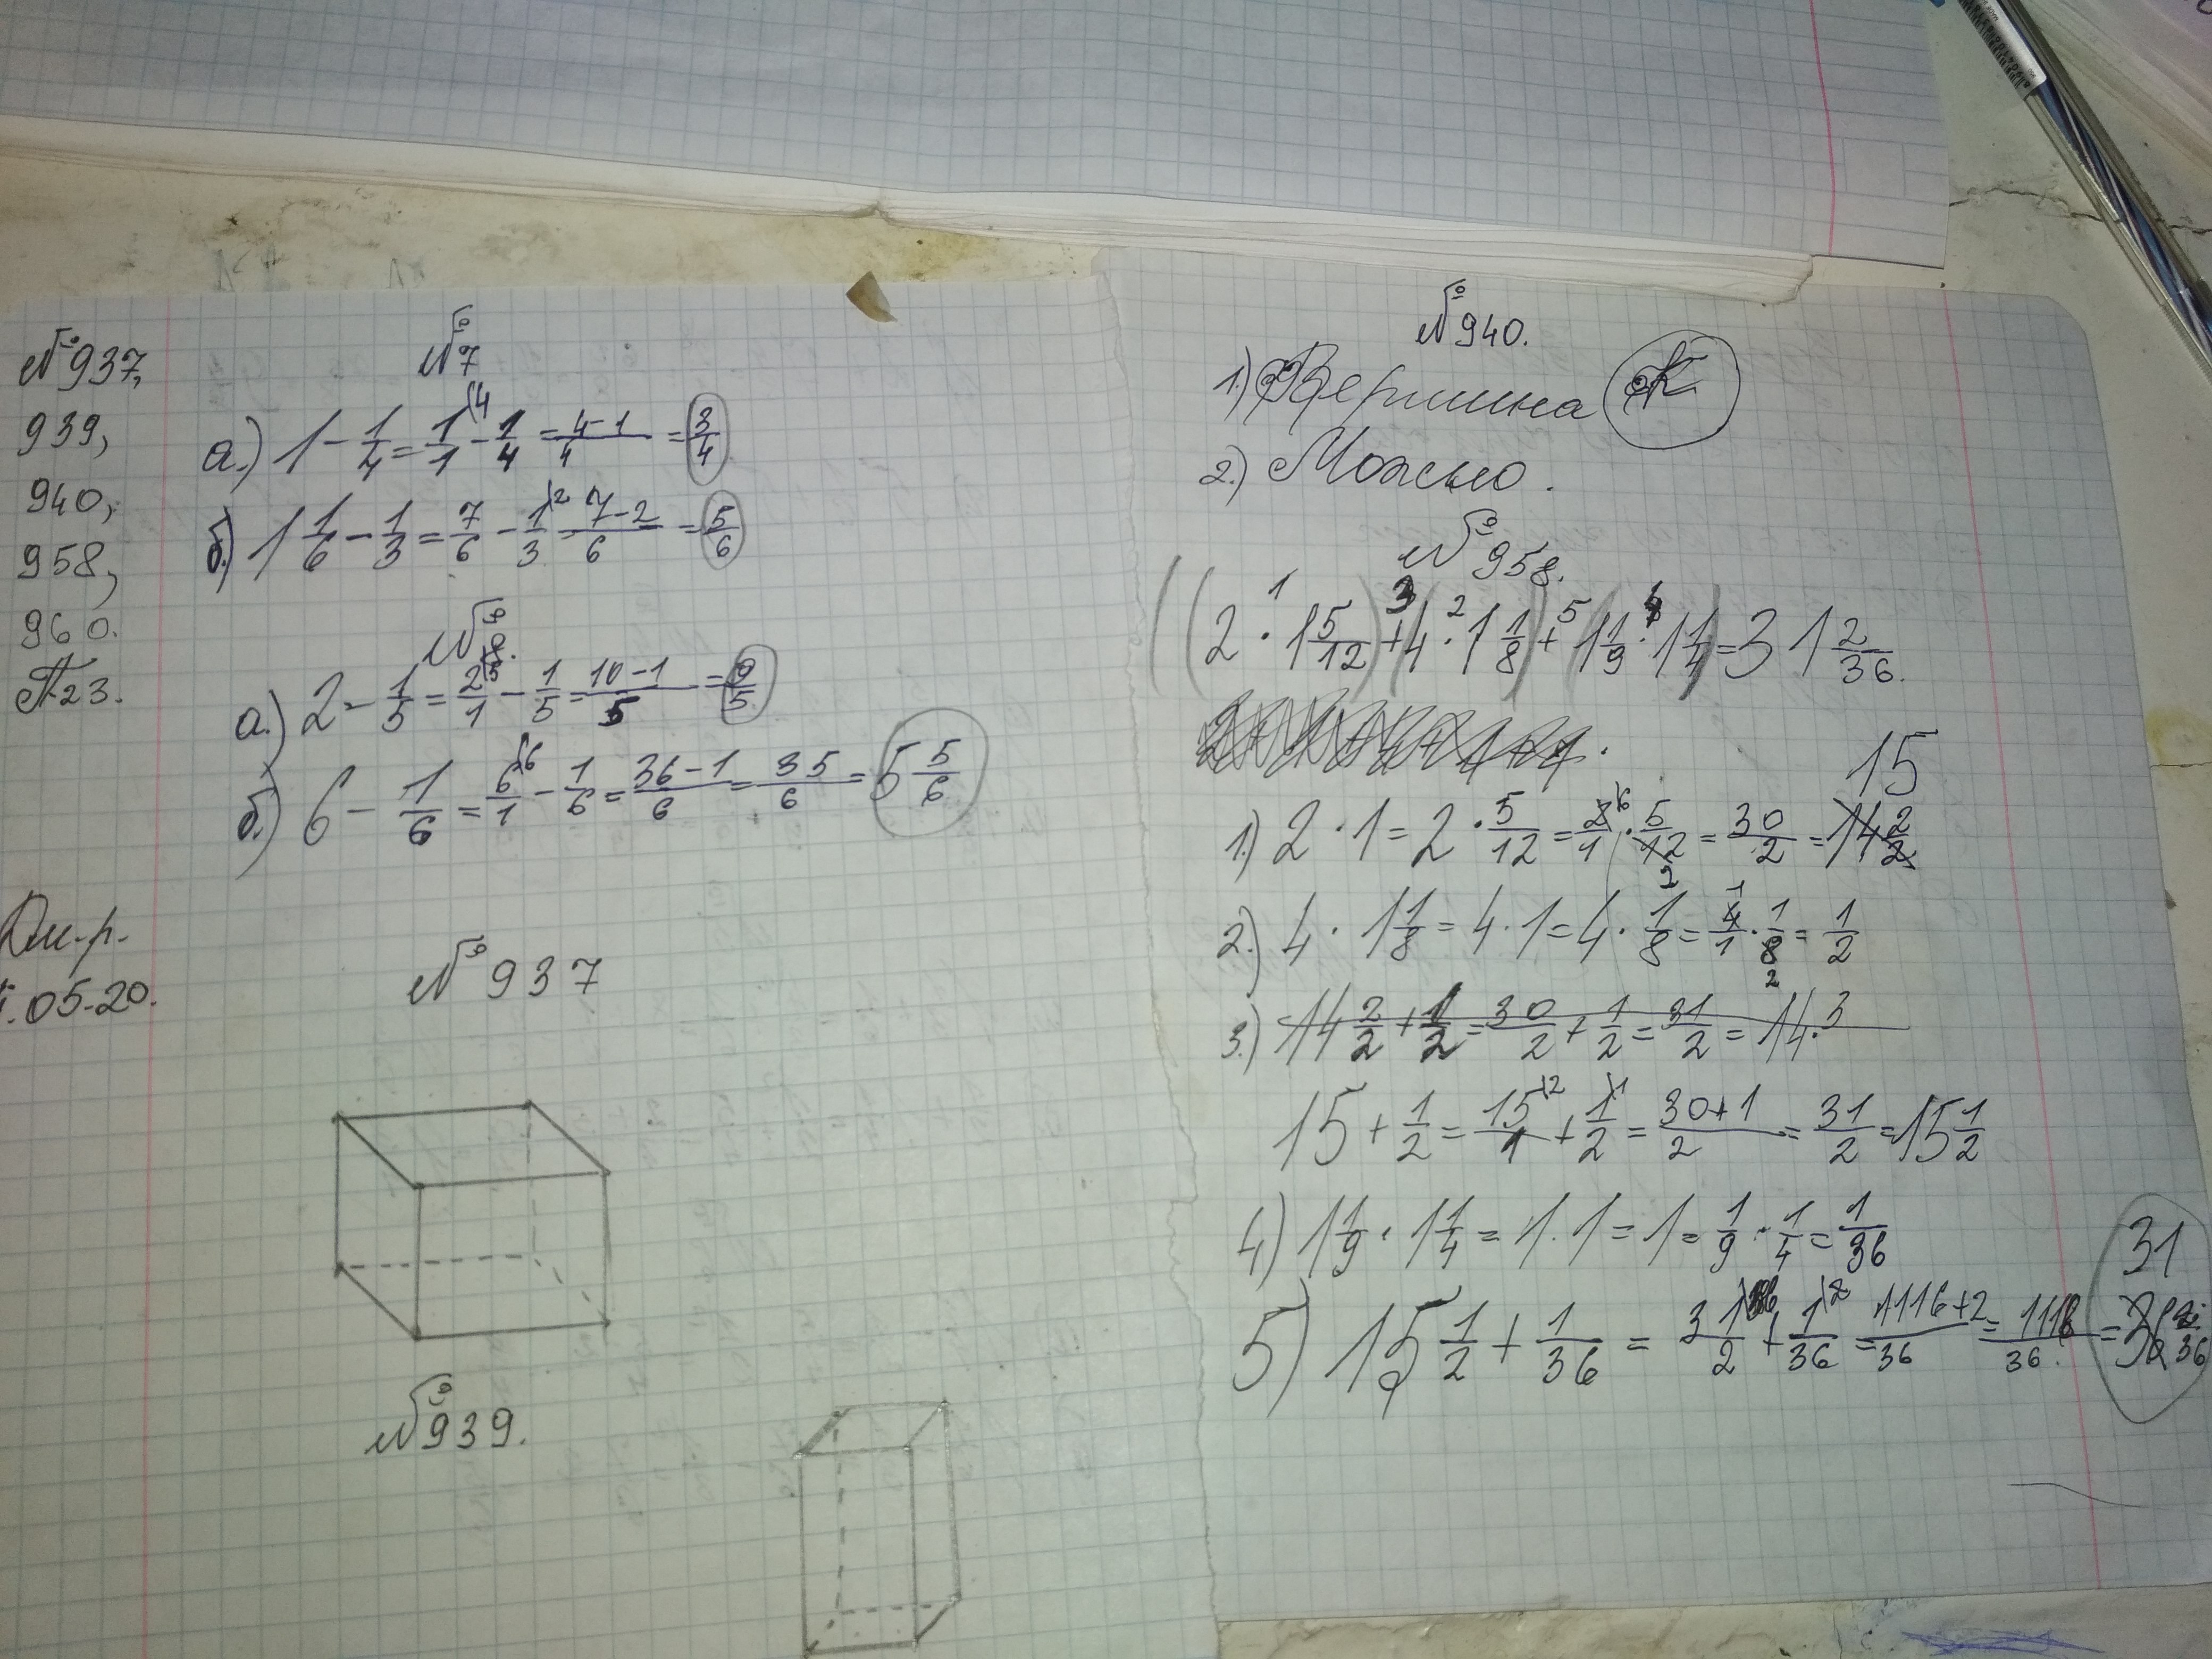 №937,
939,
940,
958,
960.
П.23.
Дм-р.
.05.20.
№7
а.) 1 - 1/4 = 1/1 \4 - 1/4 = 4-1/4 = 3/4
б.) 1 1/6 - 1/3 = 7/6 - 1/3 \2 = 7-2/6 = 5/6
№8.
а.) 2 - 1/5 = 2/1 \5 - 1/5 = 10-1/5 = 9/5
б.) 6 - 1/6 = 6/1 \6 - 1/6 = 36-1/6 = 35/6 = 5 5/6
№937
№939.
№940.
1.) Вершина К
2.) Можно.
№958.
1 3 2 5 4
((2 · 1 5/12) + (4 · 1 1/8) + (1 1/9 · 1 1/4) = 31 2/36.
15
1.) 2 · 1 = 2 · 5/12 = 2/1 \6 · 5/12 2 = 30/2 = 14 2/2
2.) 4 · 1 1/8 = 4 · 1 = 4 · 1/8 = 1 4/1 · 1/8 2 = 1/2
3.) 14 2/2 + 1/2 = 30/2 + 1/2 = 31/2 = 14 · 3
15 + 1/2 = 15/1 \2 + 1/2 \1 = 30+1/2 = 31/2 = 15 1/2
4.) 1 1/9 · 1 1/4 = 1 · 1 = 1 = 1/9 · 1/4 = 1/36
31
5) 15 1/2 + 1/36 = 31/2 \36 + 1/36 \2 = 1116+2/36 = 1118/36 = 2/36